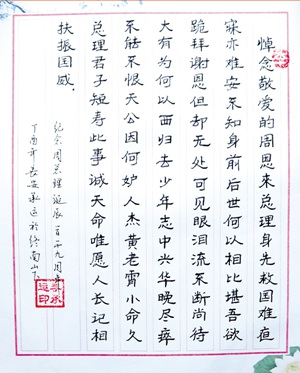 悼念敬爱的周恩来总理身先救国难疸
寐亦难安不知身前后世何以相比堪吾欲
跪拜谢恩但却无处可见眼泪流不断尚待
大有为何以西归去少年志中兴华晚尽瘁
不能不恨天公因何妒人杰黄老霄小命久
总理君子短寿此事诚天命唯愿人长记相
扶振国威.
纪念周总理诞辰百十九周年
丁酉年长安 於终南山下